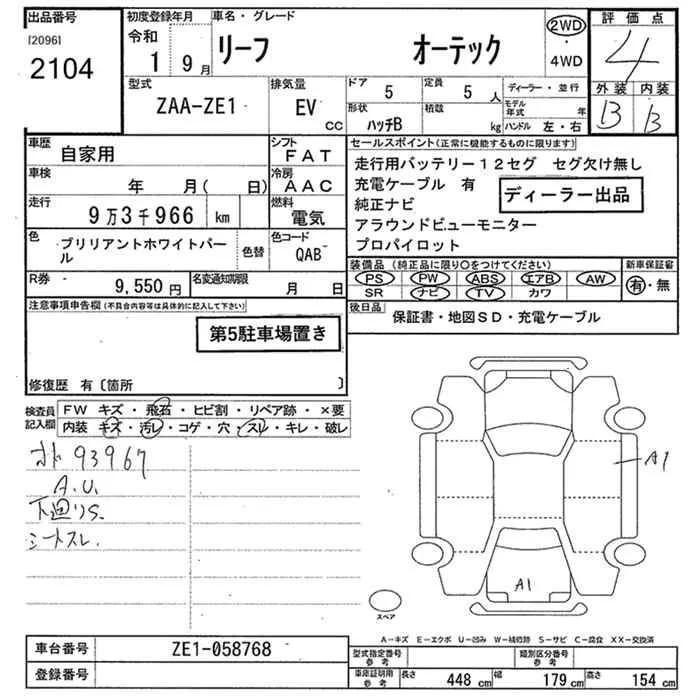 出品番号
[2096]
2104
初度登録年月
令和
1 9月
車名・グレード
リーフ オーテック
2WD
・
4WD
評価点
4
外装 内装
B B
型式
ZAA-ZE1
排気量
EV
CC
ドア
5
定員
5 人
形状
ハッチB
積載
kg
ディーラー・並行
モデル年式 年
ハンドル 左・右
車歴
自家用
車検
年 月( 日)
走行
9万3千966 km
色
ブリリアントホワイトパール
色替
R券
9,550円
名変通知期限
月 日
シフト
FAT
冷房
AAC
燃料
電気
色コード
QAB
セールスポイント(正常に機能するものに限ります)
走行用バッテリー12セグ セグ欠け無し
充電ケーブル 有
純正ナビ
アラウンドビューモニター
プロパイロット
ディーラー出品
装備品(純正品に限り○をつけてください)
PS PW ABS エアB AW
SR ナビ TV カワ
新車保証書
有・無
後日品
保証書・地図SD・充電ケーブル
注意事項申告欄(不具合内容等は具体的に記入して下さい)
第5駐車場置き
修復歴 有〔箇所 〕
検査員記入欄
FW キズ・飛石・ヒビ割・リペア跡・×要
内装 キズ・汚レ・コゲ・穴・スレ・キレ・破レ
93967
A.U.
下廻りS.
シートスレ.
A1
A1
スペア
A-キズ E-エクボ U-凹み W-補修跡 S-サビ C-腐食 XX-交換済
車台番号
ZE1-058768
登録番号
型式指定番号
参考
類別区分番号
参考
車庫証明用
参考
長さ 448 cm 幅 179 cm 高さ 154 cm